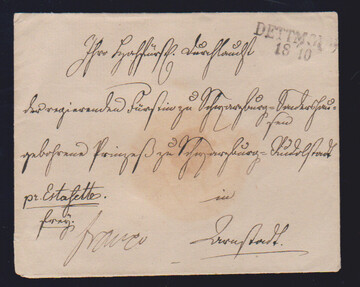 DETTMOLD
18/10
Ihro Hochfürstl. Durchlaucht
der regierenden Fürstin zu Schwarzburg=Sondershau=
sen
gebohrene Prinzeß zu Schwarzburg=Rudolstadt
pr. Estafette.
in
frey.
franco
Arnstadt.